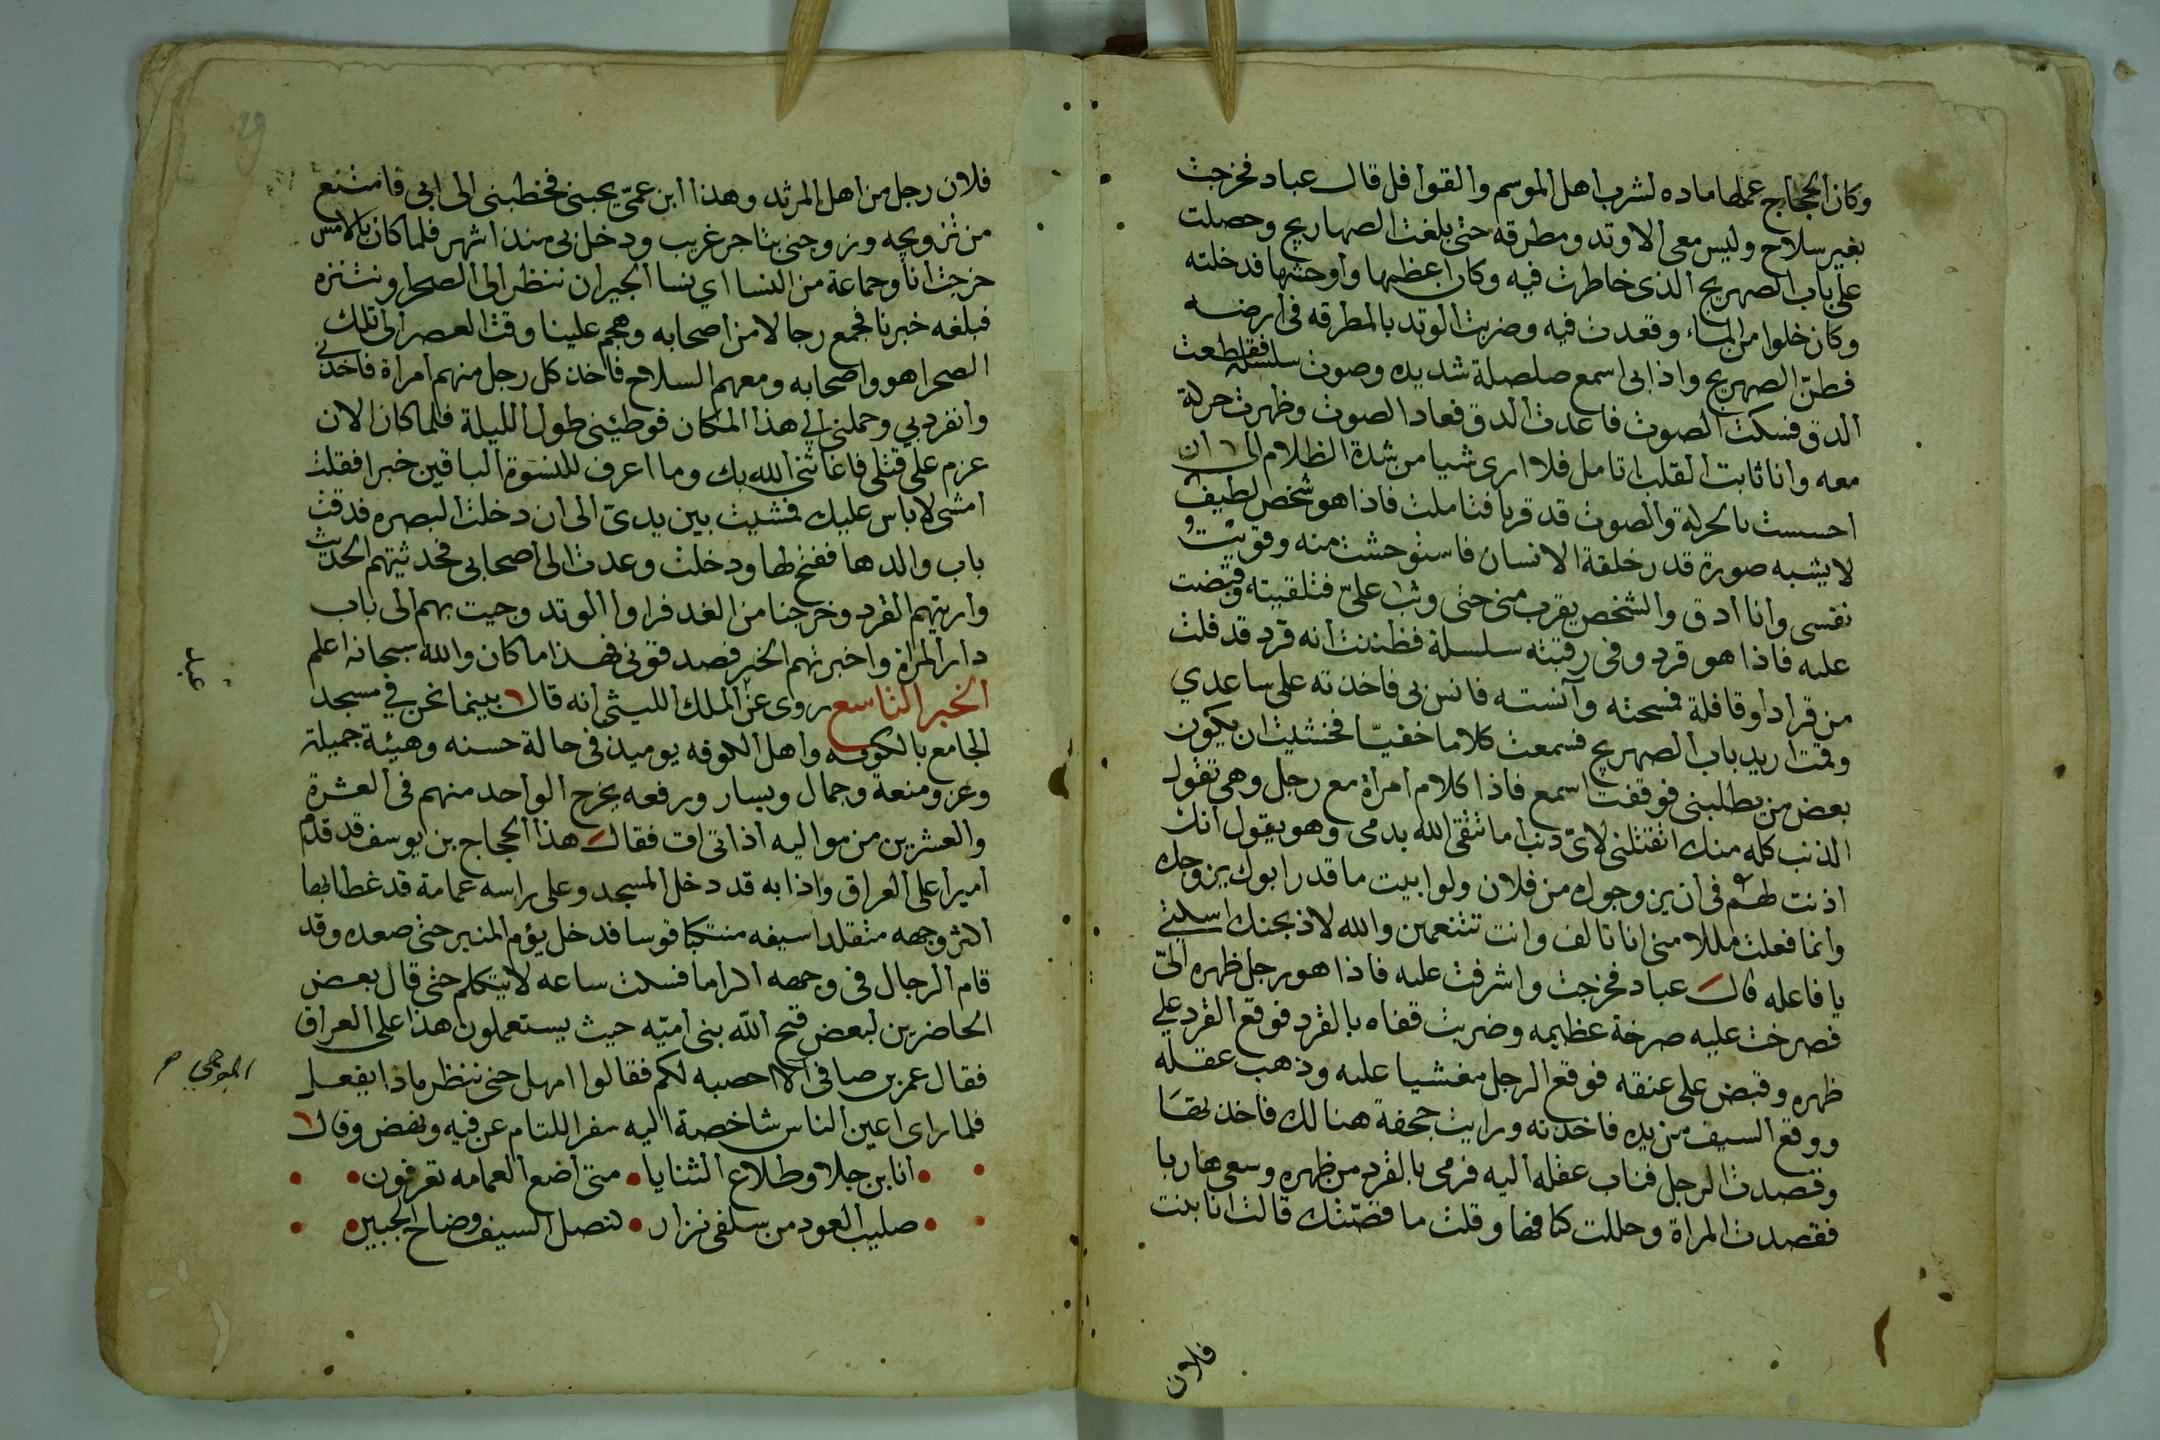 وكان الحجاج عملها ماده لشرب اهل الموسم والقوافل قال عباد فخرجت
بغير سلاح وليس معى الا وتد ومطرقه حتى بلغت الصهاريج وحصلت
على باب الصهريج الذى خاطرت فيه وكان اعظمها وأوحشها فدخلته
وكان خلوا من الماء وقعدت فيه وضربت الوتد بالمطرقه فى ارضه
فطنّ الصهريج واذا بى اسمع صلصلة شديده وصوت سلسله فقطعت
الدق فسكت الصوت فاعدت الدق فعاد الصوت وظهرت حركة
معه وانا ثابت القلب اتامل فلا ارى شيا من شدة الظلام الى ان
احسست بالحركة والصوت قد قربا فتاملت فاذا هو شخص لطيف
لا يشبه صورة قدر خلقة الانسان فاستوحشت منه وقويت
نفسى وانا ادق والشخص يقرب منى حتى وثب علىّ فتلقيته وقبضت
عليه فاذا هو قرد وفى رقبته سلسلة فظننت أنه قرد قد فلت
من قراد او قافلة فمسحته وآنسته فانس بى فاخذته على ساعدي
وقمت اريد باب الصهريج فسمعت كلاما خفيّا فخشيت ان يكون
بعض من يطلبنى فوقفت اسمع فاذا كلام امراة مع رجل وهى تقول
الذنب كله منك اتقتلنى لاىّ ذنب اما تتقى الله بدمى وهو يقول انك
اذنت لهم فى أن يزوجوك من فلان ولو ابيت ما قدر ابوك يزوجك
وانما فعلت مللا منى انا تالف وانت تتنعمين والله لاذبحنك اسكتى
يا فاعله قال عباد فخرجت واشرفت عليه فاذا هو رجل ظهره الىّ
فصرخت عليه صرخة عظيمه وضربت قفاه بالقرد فوقع القرد على
ظهره وقبض على عنقه فوقع الرجل مغشيا عليه وذهب عقله
ووقع السيف من يده فاخذته ورايت جحفة هنالك فاخذتها
وقصدت الرجل فثاب عقله اليه فرمى بالقرد من ظهره وسعى هاربا
فقصدت المراة وحللت كتافها وقلت ما قصّتك قالت انا بنت
فلان
فلان رجل من اهل المرثد وهذا ابن عمّى يحبنى فخطبنى الى ابى فامتنع
من تزويجه وزوجنى بتاجر غريب ودخل بى منذ اشهر فلما كان بالامس
خرجت انا وجماعة من النسا اي نسا الجيران ننظر الى الصحرا ونتنزه
فبلغه خبرنا فجمع رجالا من اصحابه وهجم علينا وقت العصر الى تلك
الصحرا هو واصحابه ومعهم السلاح فاخذ كل رجل منهم امراة فاخذنى
وانفرد بي وحملني الى هذا المكان فوطئنى طول الليلة فلما كان الان
عزم على قتلى فاغاثنى الله بك وما اعرف للنسوة الباقين خبرا فقلت
امشى لا باس عليك فمشيت بين يدىّ الى ان دخلت البصره فدقت
باب والدها ففتح لها ودخلت وعدت الى اصحابى فحدثيتهم الحديث
واريتهم القرد وخرجنا من الغد فراوا الوتد وجيت بهم الى باب
دار المراة واخبرتهم الخبر فصدقونى فهذا ما كان والله سبحانه اعلم
الخبر التاسع روى عن الملك الليثى أنه قال بينما نحن في مسجد
الجامع بالكوفه واهل الكوفه يوميذ فى حالة حسنه وهيئة جميلة
وعز ومنعة وجمال ويسار ورفعه يخرج الواحد منهم فى العشرة
والعشرين من مواليه اذ اتى ات فقال هذا الحجاج بن يوسف قد قدم
اميرا على العراق واذا به قد دخل المسجد وعلى راسه عمامة قد غطا بها
اكثر وجهه متقلدا سيفه متنكبا قوسا فدخل يؤم المنبر حتى صعده وقد
قام الرجال فى وجهه اكراما فسكت ساعه لا يتكلم حتى قال بعض
الحاضرين لبعض قبح الله بنى أميّه حيث يستعملون هذا على العراق
فقال عمر بن صافى الا احصبه لكم فقالوا امهل حتى ننظر ماذا يفعل
فلما راى اعين الناس شاخصة اليه سفر اللثام عن فيه ونهض وقال
انا بن جلا وطلاع الثنايا متى أضع العمامه تعرفون
صليب العود من سلفى نزار كنصل السيف وضاح الجبين
عبد